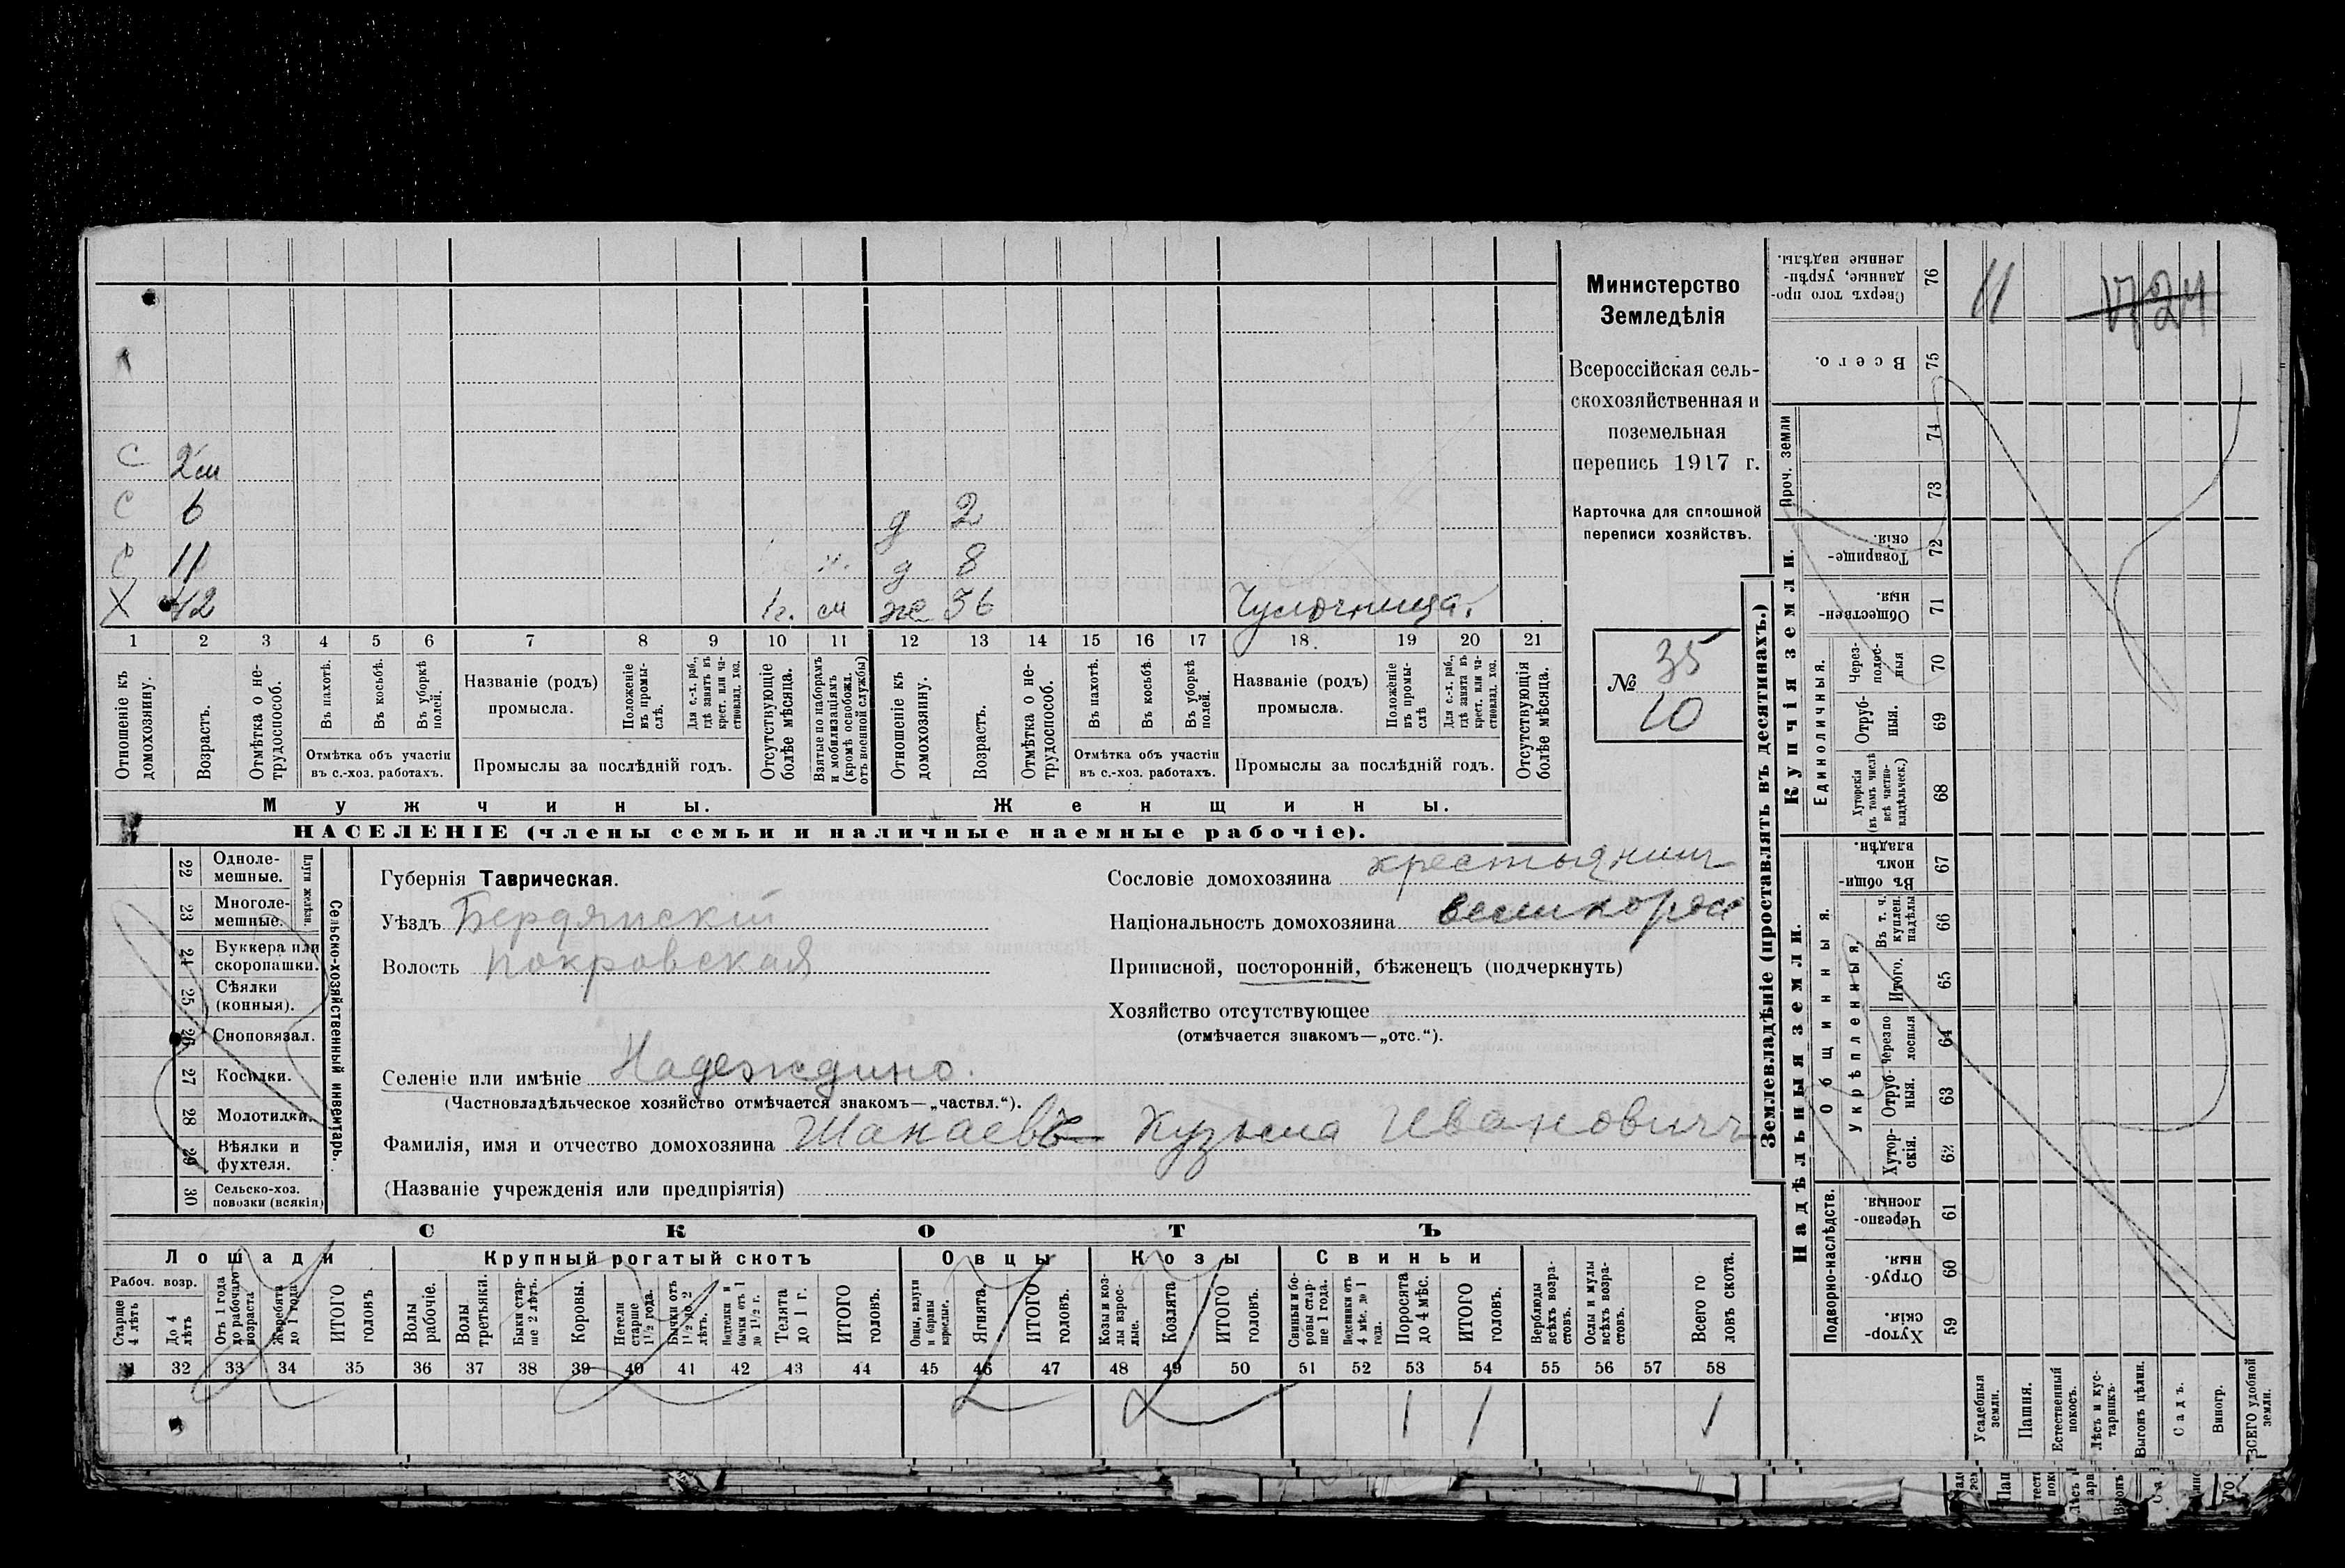 С 2м
С 6 д 2
С 11 " д 8
Х 42 1г. см же 36 Чулочница.
1 2 3 4 5 6 7 8 9 10 11 12 13 14 15 16 17 18. 19 20 21
Отношеніе къ домохозяину.
Возрастъ.
Отмѣтка о не-трудоспособ.
Въ пахотѣ.
Въ косьбѣ.
Въ уборкѣ полей.
Отмѣтка объ участіи
въ с.-хоз. работахъ.
Названіе (родъ)
промысла.
Положеніе въ промы-слѣ.
Для с.-х. раб., гдѣ занятъ въ крест. или ча-ствовлад. хоз.
Промыслы за послѣдній годъ.
Отсутствующіе болѣе мѣсяца.
Взятые по наборамъ и мобилизаціямъ (кромѣ освобожд. отъ военной службы)
Отношеніе къ домохозяину.
Возрастъ.
Отмѣтка о не-трудоспособ.
Въ пахотѣ.
Въ косьбѣ.
Въ уборкѣ полей.
Отмѣтка объ участіи
въ с.-хоз. работахъ.
Названіе (родъ)
промысла.
Положеніе въ промы-слѣ
Для с.-х. раб., гдѣ занята въ крест. или ча-ствовлад. хоз.
Промыслы за послѣдній годъ.
Отсутствующія болѣе мѣсяца.
Мужчины. Женщины.
НАСЕЛЕНІЕ (члены семьи и наличные наемные рабочіе).
Министерство
Земледѣлія
Всероссійская сель-
скохозяйственная и
поземельная
перепись 1917 г.
Карточка для сплошной
переписи хозяйствъ.
№ 35
10
22 Одноле-мешные.
23 Многоле-мешные.
Плуги желѣзн.
24 Буккера или скоропашки.
25 Сѣялки (конныя).
26 Сноповязал.
27 Косилки.
28 Молотилки.
29 Вѣялки и фухтеля.
30 Сельско-хоз. повозки (всякія)
Сельско-хозяйственный инвентарь.
Губернія Таврическая.
Уѣздъ Бердянскій
Волость Покровская
Селеніе или имѣніе Надеждино.
(Частновладѣльческое хозяйство отмѣчается знакомъ—„частвл.“).
Фамилія, имя и отчество домохозяина Шанаевъ Кузьма Ивановичъ
(Названіе учрежденія или предпріятія)
Сословіе домохозяина крестьянинъ
Національность домохозяина великоросс
Приписной, посторонній, бѣженецъ (подчеркнуть)
Хозяйство отсутствующее
(отмѣчается знакомъ—„отс.“).
СКОТЪ
Лошади Крупный рогатый скотъ Овцы Козы Свиньи
Рабоч. возр.
Старше 4 лѣтъ
До 4 лѣтъ
Отъ 1 года до рабочаго возраста
Жеребята до 1 года
ИТОГО головъ
Волы рабочіе.
Волы третьяки.
Быки стар-ше 2 лѣтъ.
Коровы.
Нетели старше 1½ года.
Бычки отъ 1½ до 2 лѣтъ.
Нетелки и бычки отъ 1 до 1½ г.
Телята до 1 г.
ИТОГО головъ.
Овцы, валухи и бараны взрослые.
Ягнята.
ИТОГО головъ.
Козы и коз-лы взрос-лые.
Козлята
ИТОГО головъ.
Свиньи и бо-ровы стар-ше 1 года.
Подсвинки отъ 4 мѣс. до 1 года.
Поросята до 4 мѣс.
ИТОГО головъ.
Верблюды всѣхъ возра-стовъ.
Ослы и мулы всѣхъ возра-стовъ.
Всего го ловъ скота.
31 32 33 34 35 36 37 38 39 40 41 42 43 44 45 46 47 48 49 50 51 52 53 54 55 56 57 58
1 1 1
Землевладѣніе (проставлять въ десятинахъ.)
Купчія земли.
Надѣльныя земли.
Сверхъ того про-данные, укрѣп-ленные надѣлы. 76 11
Всего. 75
Проч. земли 74 73
Товарище-скія. 72
Обществен-ныя. 71
Единоличныя.
Через-полос-ныя 70
Отруб-ныя. 69
Хуторскія (въ томъ числѣ всѣ частно-владѣльческ.) 68
Общинныя.
Въ общи-номъ владѣн. 67
Укрѣпленныя.
Въ т. ч. куплен. надѣлы 66
Итого. 65
Черезпо-лосныя 64
Отруб-ныя. 63
Хутор-скія. 62
Подворно-наслѣдств.
Черезпо-лосныя. 61
Отруб-ныя. 60
Хутор-скія. 59
Усадебныя земли.
Пашня.
Естественный покосъ.
Лѣсъ и кус-тарникъ.
Выгонъ цѣлин.
Садъ.
Виногр.
ВСЕГО удобной земли.